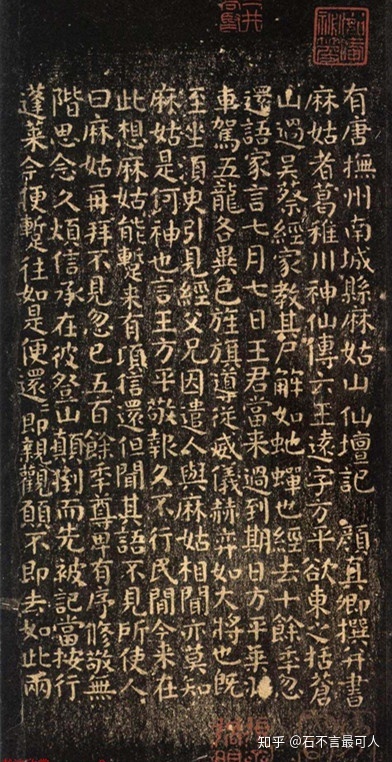 有唐撫州南城縣麻姑山仙壇記 顏真卿撰并書
麻姑者葛稚川神仙傳云王遠字方平欲東之括蒼
山過吳蔡經家教其尸解如虵蟬也經去十餘季忽
還語家言七月七日王君當来過到期日方平乘羽
車駕五龍各異色旌旗導從威儀赫弈如大將也既
至坐須臾引見經父兄因遣人與麻姑相聞亦莫知
麻姑是何神也言王方平敬報久不行民間今来在
此想麻姑能蹔来有頃信還但聞其語不見所使人
曰麻姑再拜不見忽已五百餘季尊卑有序修敬無
階思念久煩信承在彼登山顛倒而先被記當按行
蓬萊今便蹔往如是便還即親觀願不即去如此兩
知乎 @石不言最可人